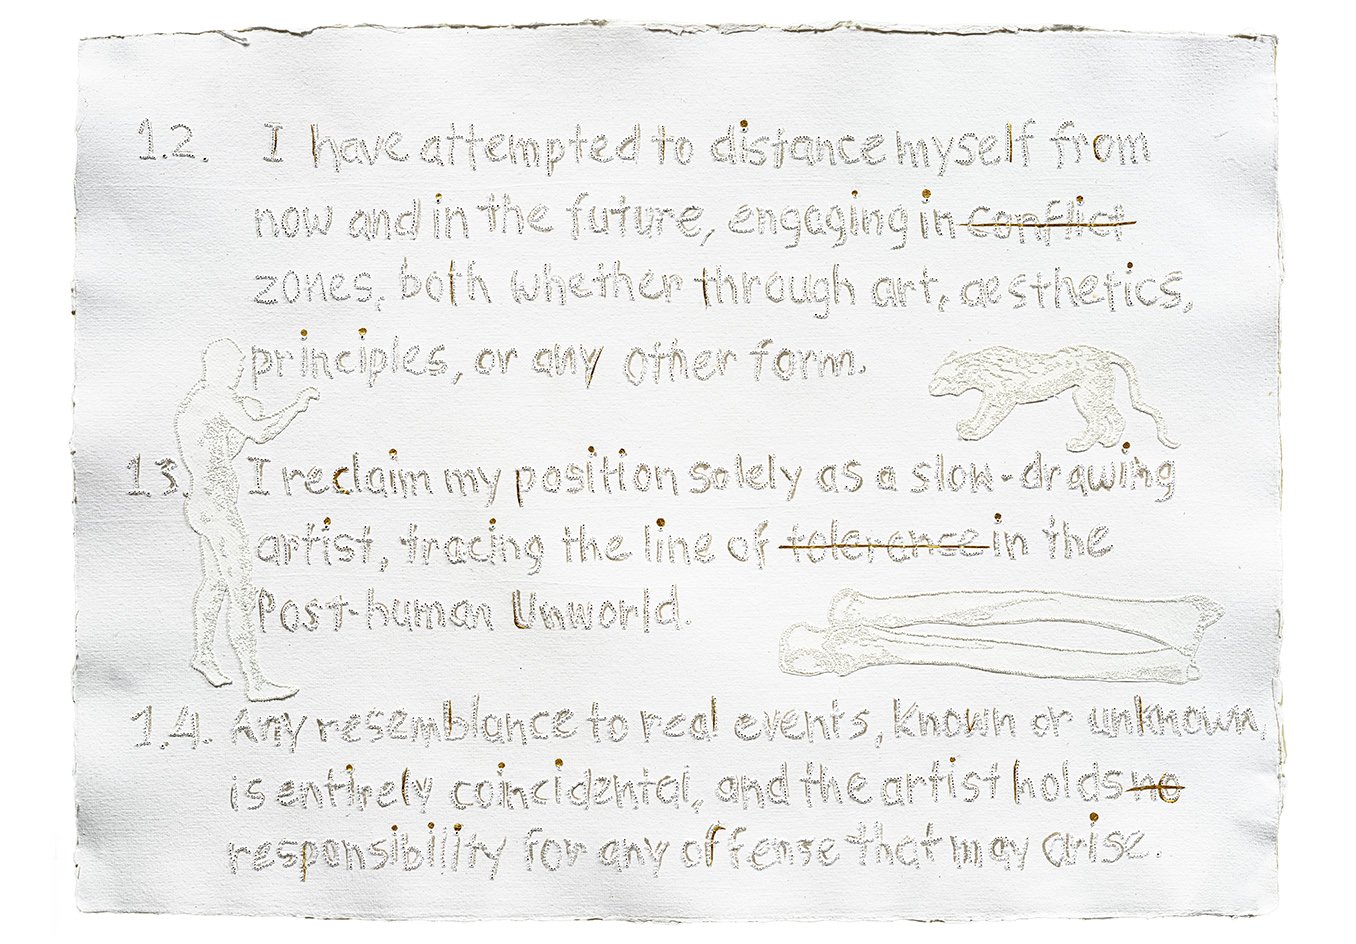 1.2. I have attempted to distance myself from
now and in the future, engaging in conflict
zones, both whether through art, aesthetics,
principles, or any other form.
1.3. I reclaim my position solely as a slow-drawing
artist, tracing the line of tolerence in the
Post-human Unworld.
1.4. Any resemblance to real events, known or unknown,
is entirely coincidental, and the artist holds no
responsibility for any offense that may arise.